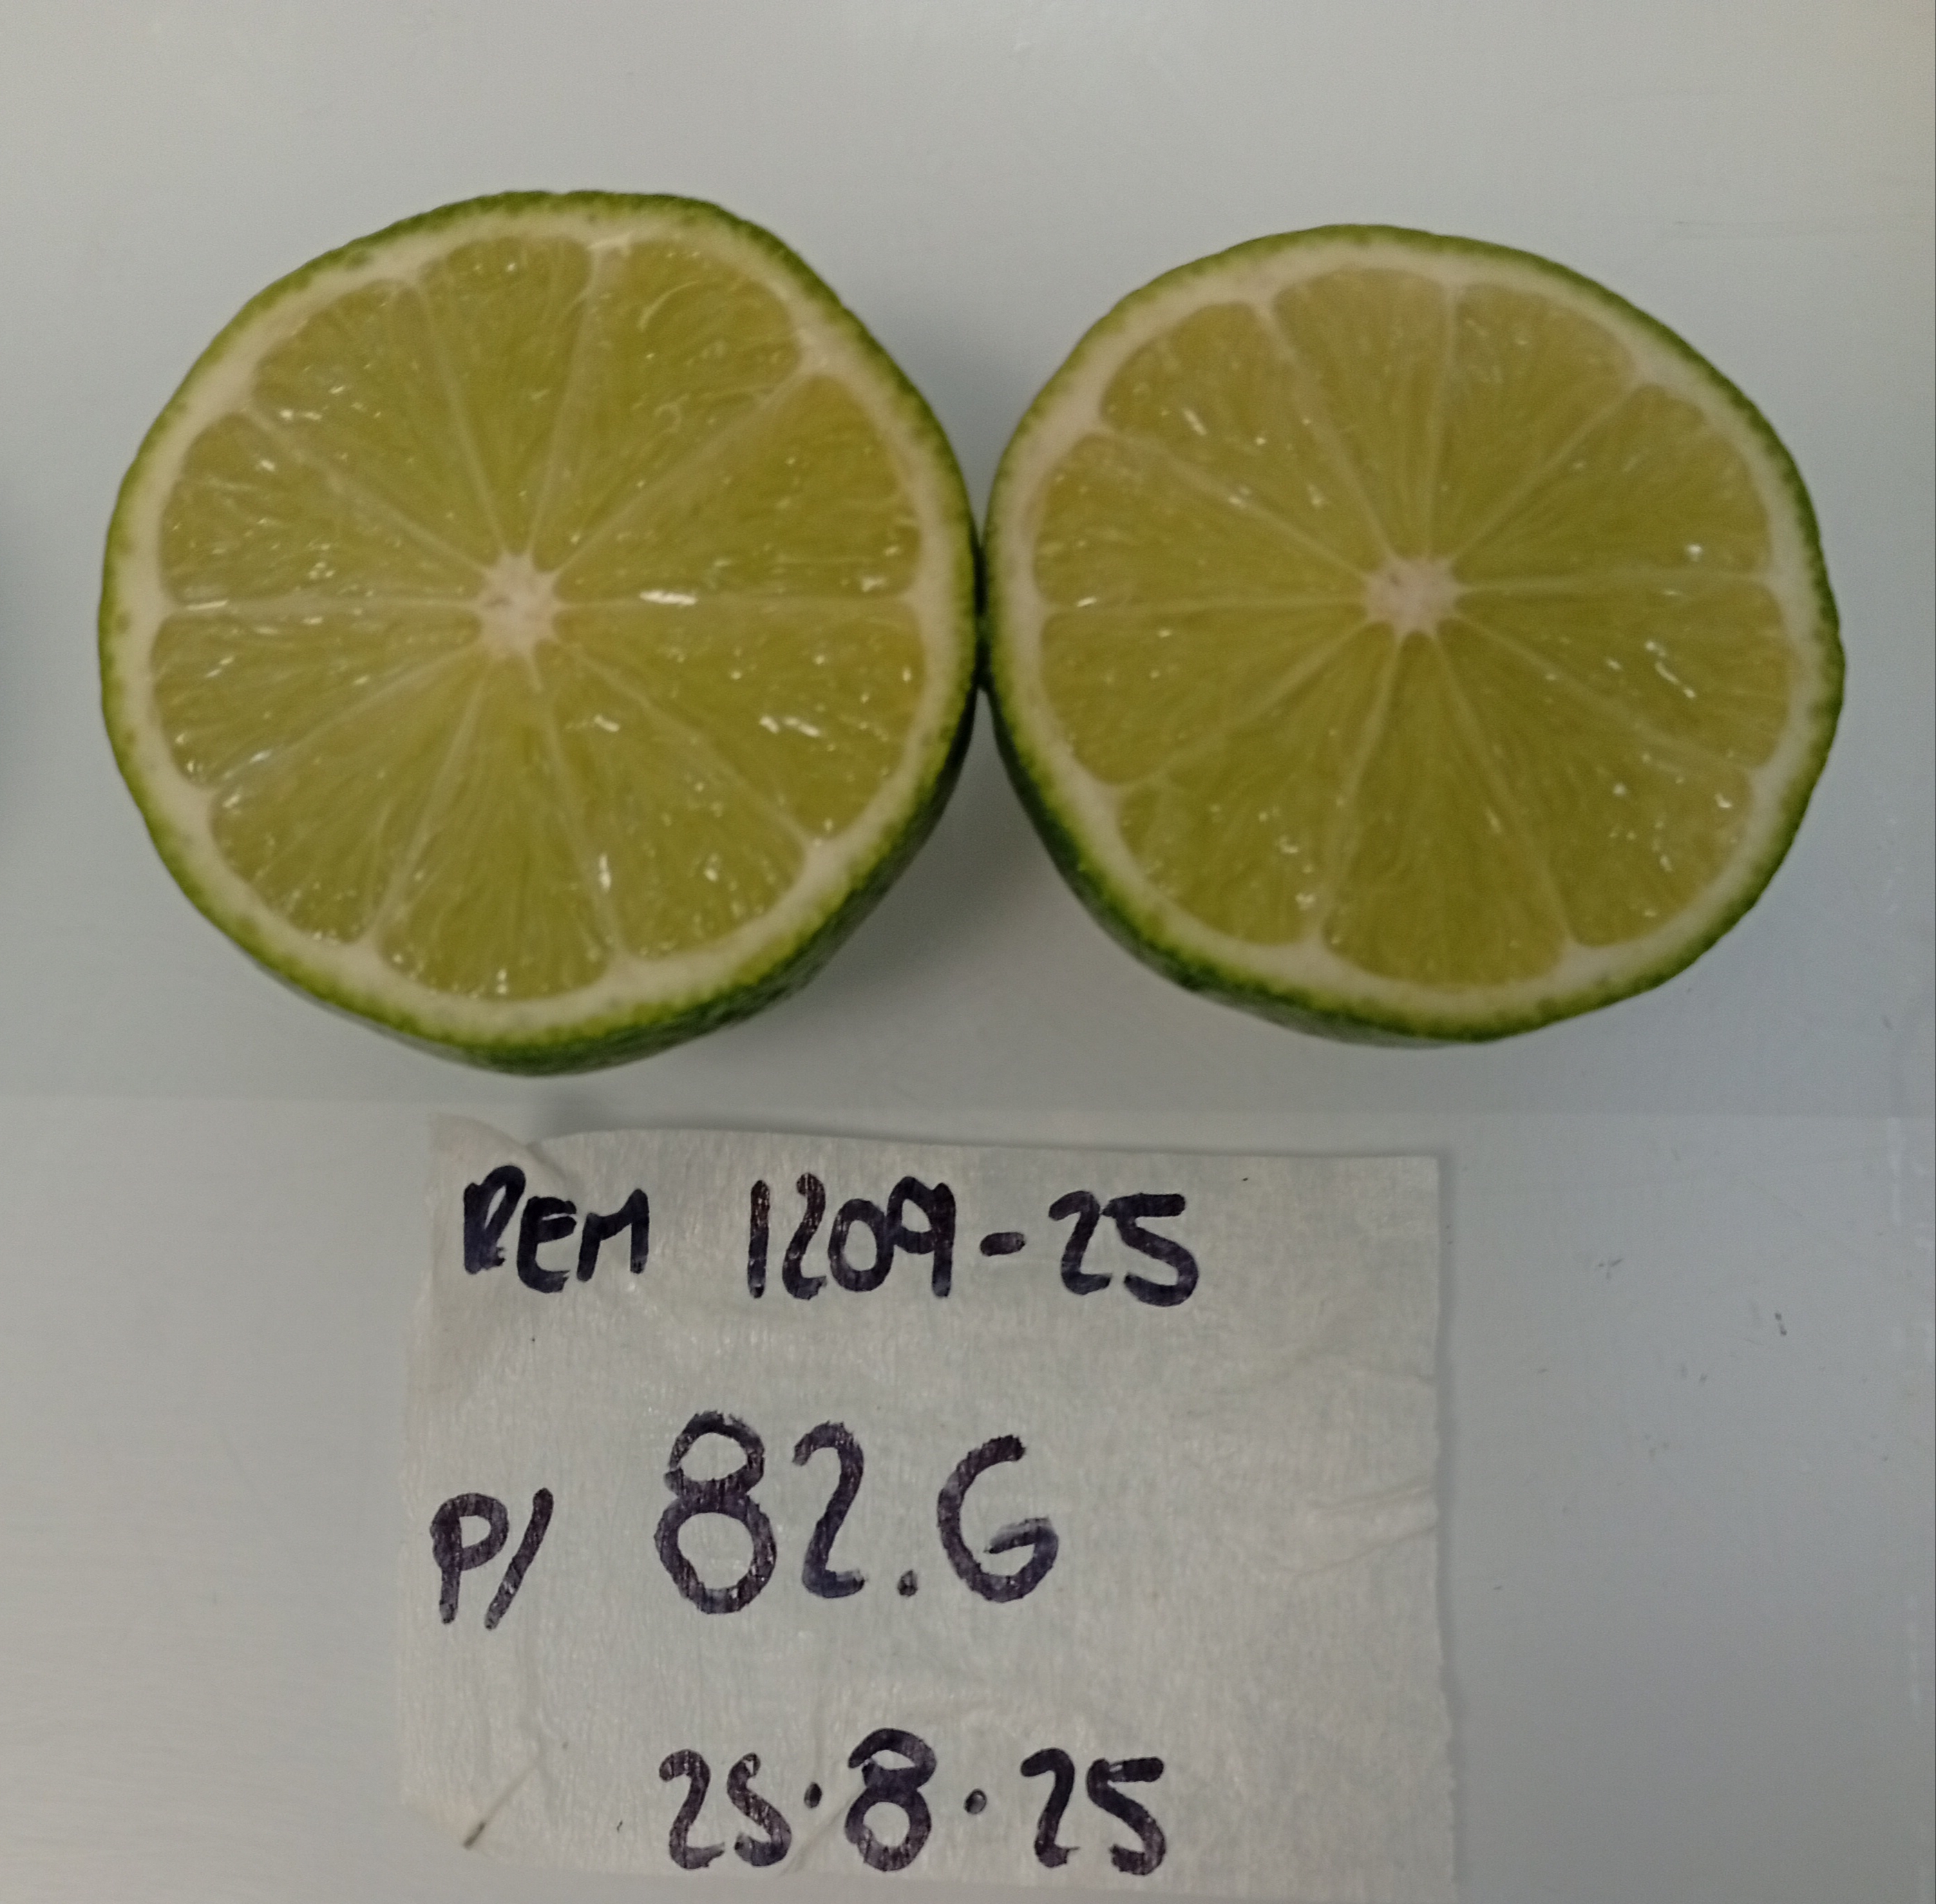 REM 1209-25
P/ 82.6
25.8.25